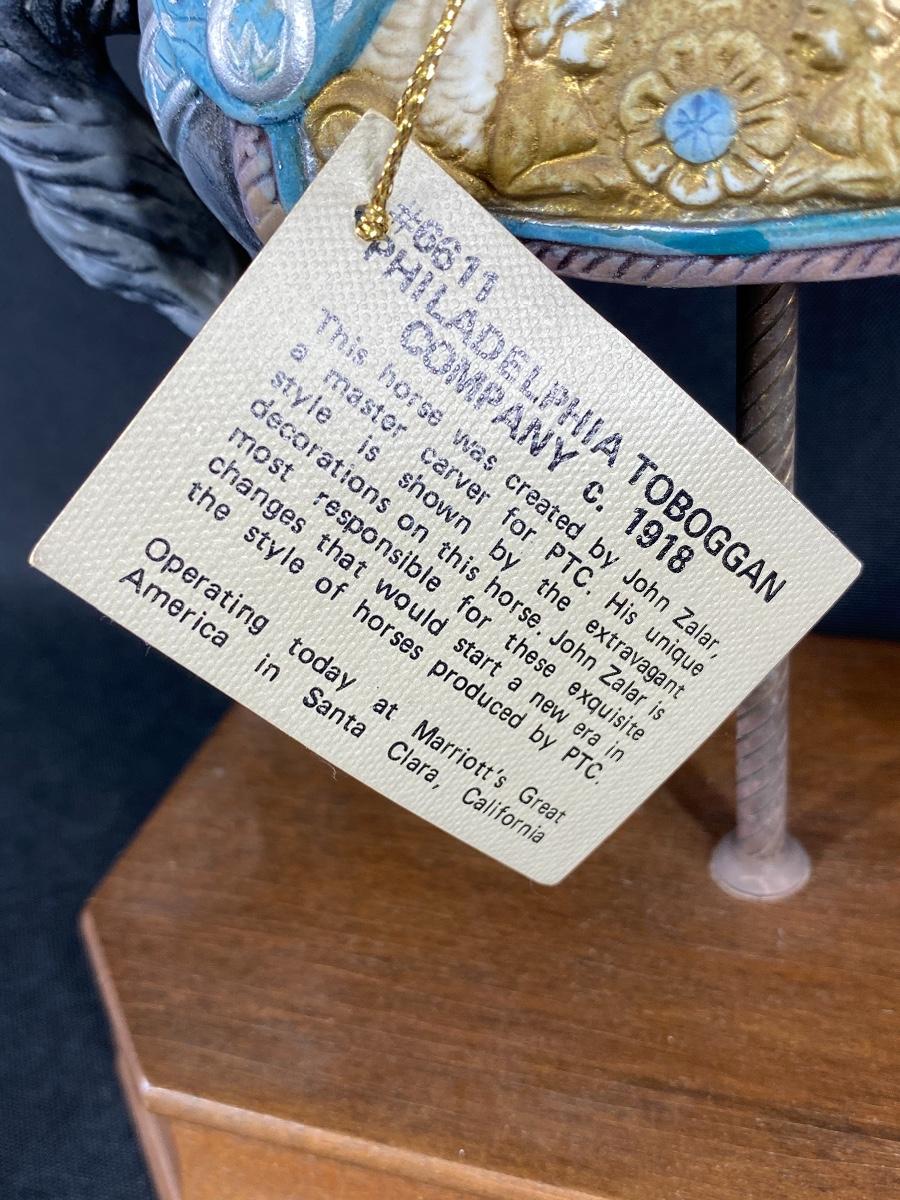 #6611
PHILADELPHIA TOBOGGAN
COMPANY c. 1918
This horse was created by John Zalar,
a master carver for PTC. His unique
style is shown by the extravagant
decorations on this horse. John Zalar is
most responsible for these exquisite
changes that would start a new era in
the style of horses produced by PTC.
Operating today at Marriott's Great
America in Santa Clara, California